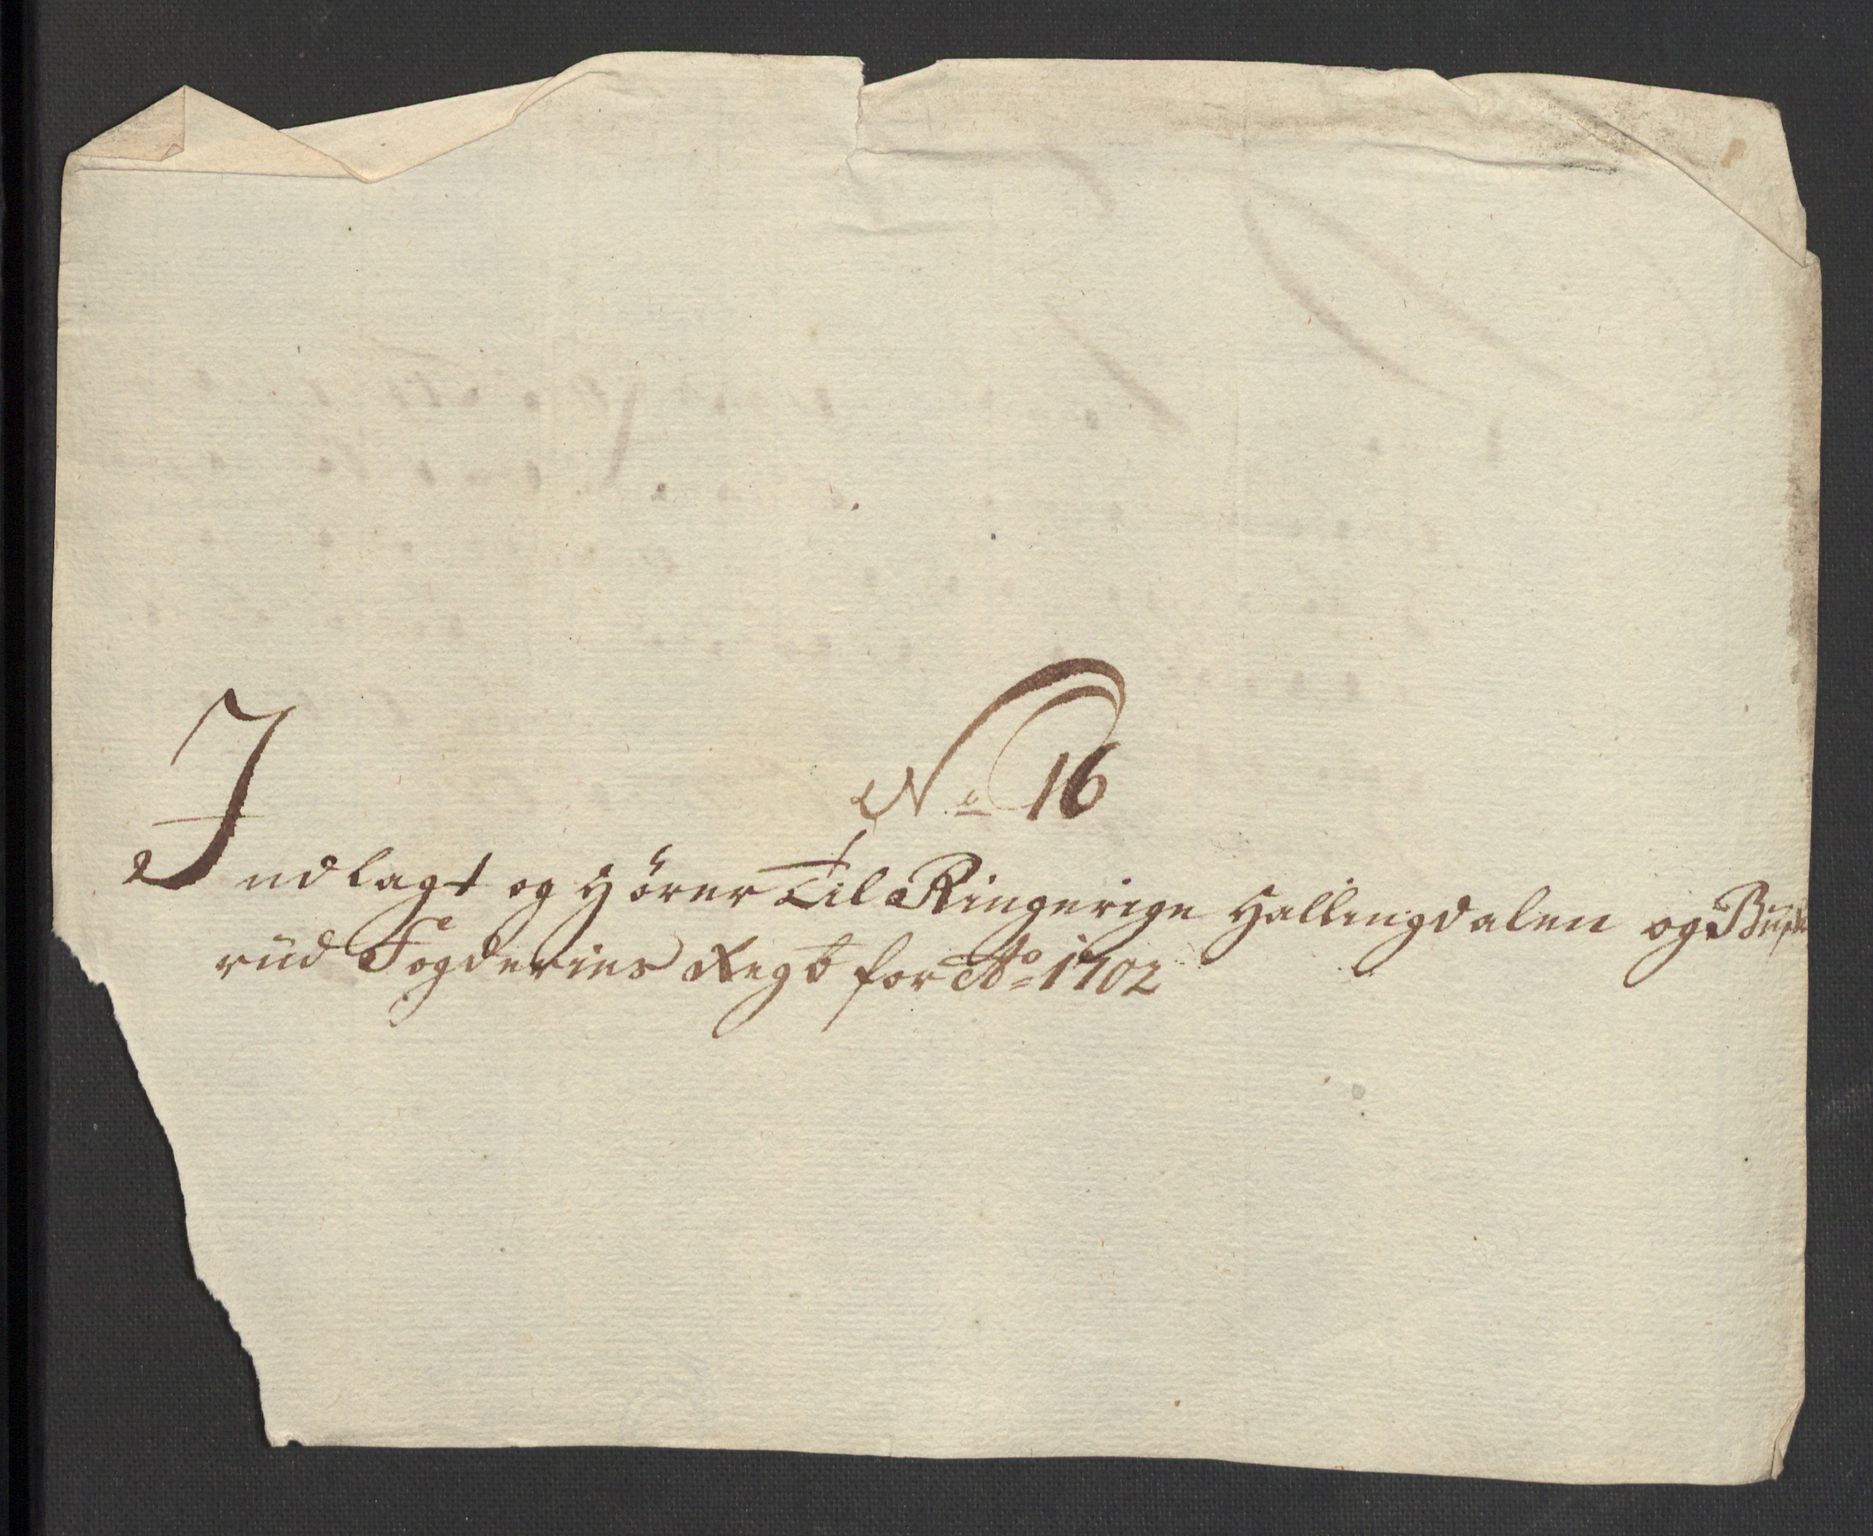 No 16
Indlagt og hörer Til Ringerige Hallingdalen og Buske
rüd Fogderies Regb for Ao 1702